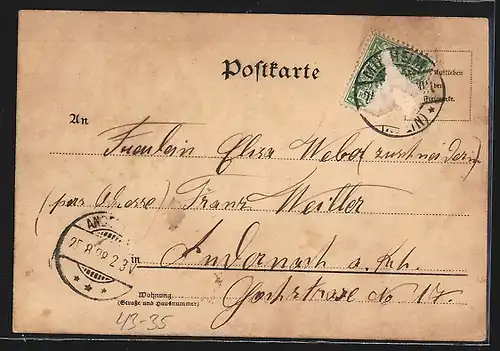 Postkarte
Aufkleben
der
An Fräulein Elise Weber (zuschneiderin)
(per Adresse) Franz Weiller
AND
25.8.99.2-3N
in Andernach a. Rh.
Wohnung
(Straße und Hausnummer)
Hochstrasse No 17.
43-35